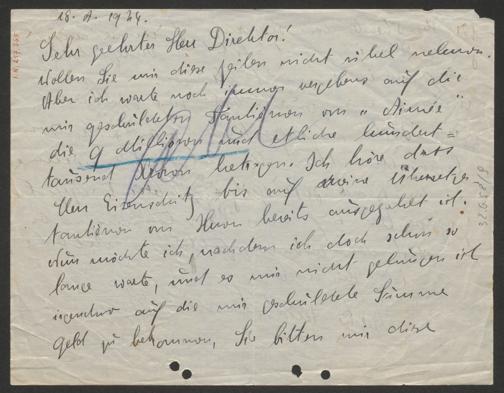 18. A. 1924.
Sehr geehrter Herr Direktor!
Wollen Sie mir diese Zeilen nicht übel nehmen.
Aber ich warte noch immer vergebens auf die
mir geschuldeten Tantiemen von "Aimée"
die 9 Millionen und etliche hundert=
tausend Kronen betragen. Ich höre dass
Herr Eisenschitz bis auf seine Übersetzer
tantiemen von Ihnen bereits ausgezahlt ist.
Nun möchte ich, nachdem ich doch schon so
lange warte, und es mir nicht gelungen ist
irgendwo auf die mir geschuldete Summe
Geld zu bekommen, Sie bitten mir diese